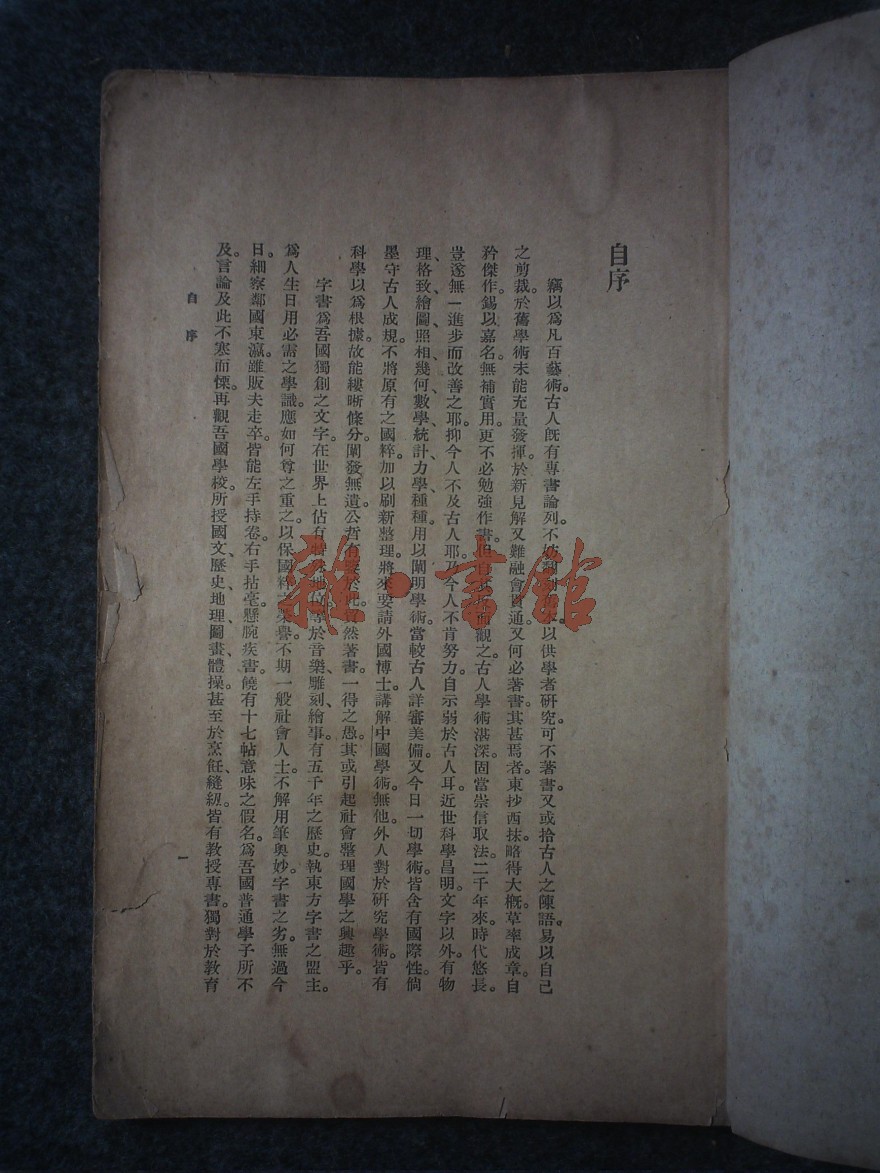 自序
竊以爲凡百藝術。古人旣有專書論列。不妨以供學者研究。可不著書。又或拾古人之陳語。易以自己
之剪裁。於舊學術未能充量發揮。於新見解又難融會貫通。又何必著書。其甚焉者。東抄西抹。略得大槪。草率成章。自
矜傑作。錫以嘉名。無補實用。更不必勉強作書。但而觀之。古人學術湛深。固當崇信取法。二千年來。時代悠長。
豈遂無一進步而改善之耶。抑今人不及古人耶。乃今人不肯努力。自示弱於古人耳。近世科學昌明。文字以外。有物
理、格致、繪圖、照相、幾何、數學、統計、力學、種種。用以闡明學術。當較古人詳審美備。又今日一切學術。皆含有國際性。倘
墨守古人成規。不將原有之國粹。加以刷新整理。將來要請外國博士。講解中國學術。無他。外人對於研究學術。皆有
科學以爲根據。故能縷晰條分。闡發無遺。公哲有然著書。一得之愚。其或引起社會整理國學之興趣乎。
字書爲吾國獨創之文字。在世界上佔有地位。等於音樂、雕刻、繪事。有五千年之歷史。執東方字書之盟主。
爲人生日用必需之學識。應如何尊之重之。以保國粹之榮譽。不期一般社會人士。不解用筆奧妙。字書之劣。無過今
日。細察鄰國東瀛。雖販夫走卒。皆能左手持卷。右手拈毫。懸腕疾書。饒有十七帖意味之假名。爲吾國普通學子所不
及。言論及此。不寒而慄。再觀吾國學校。所授國文、歷史、地理、圖畫、體操。甚至於烹飪、縫紉。皆有教授專書。獨對於教育
自序
一
雜·書館